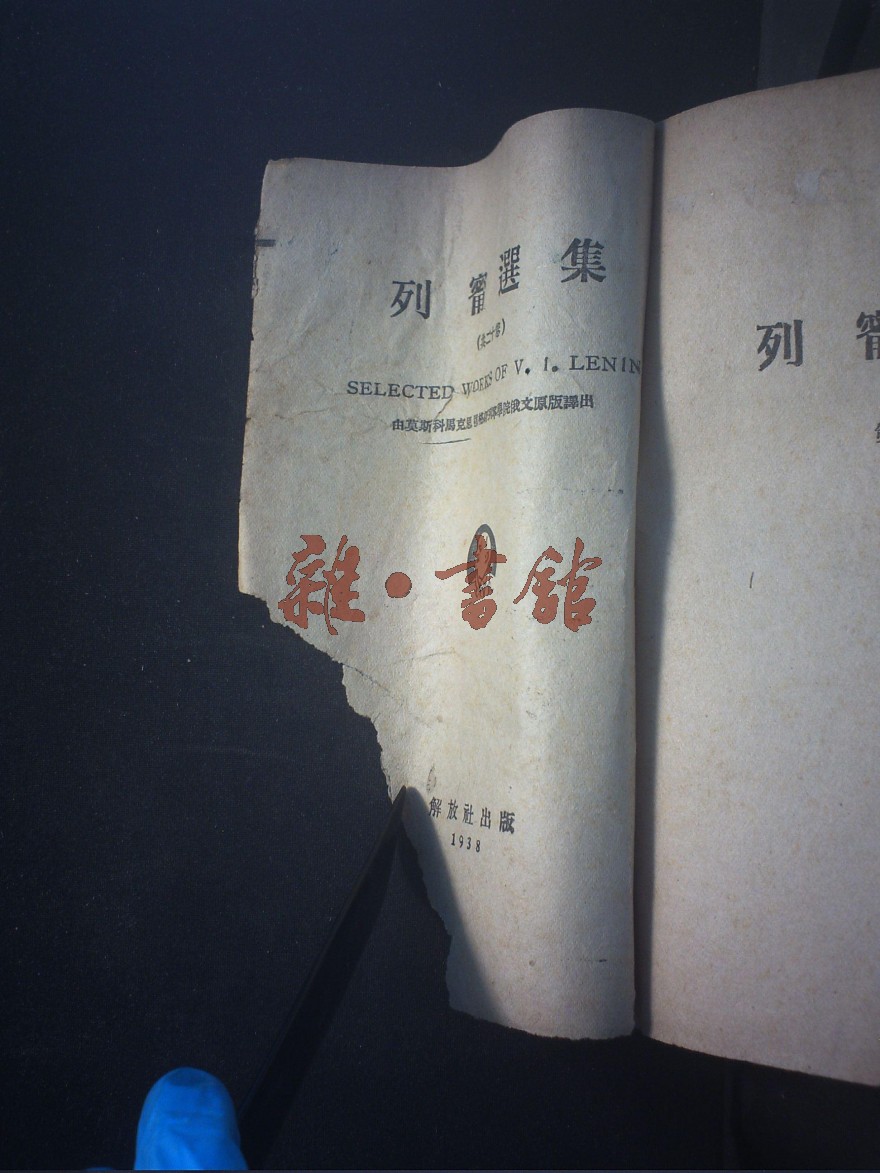 列甯選集
(共二十卷)
SELECTED WORKS OF V. I. LENIN
由莫斯科馬克思
學院俄文原版譯出
雜·書館
解放社出版
1938
列甯